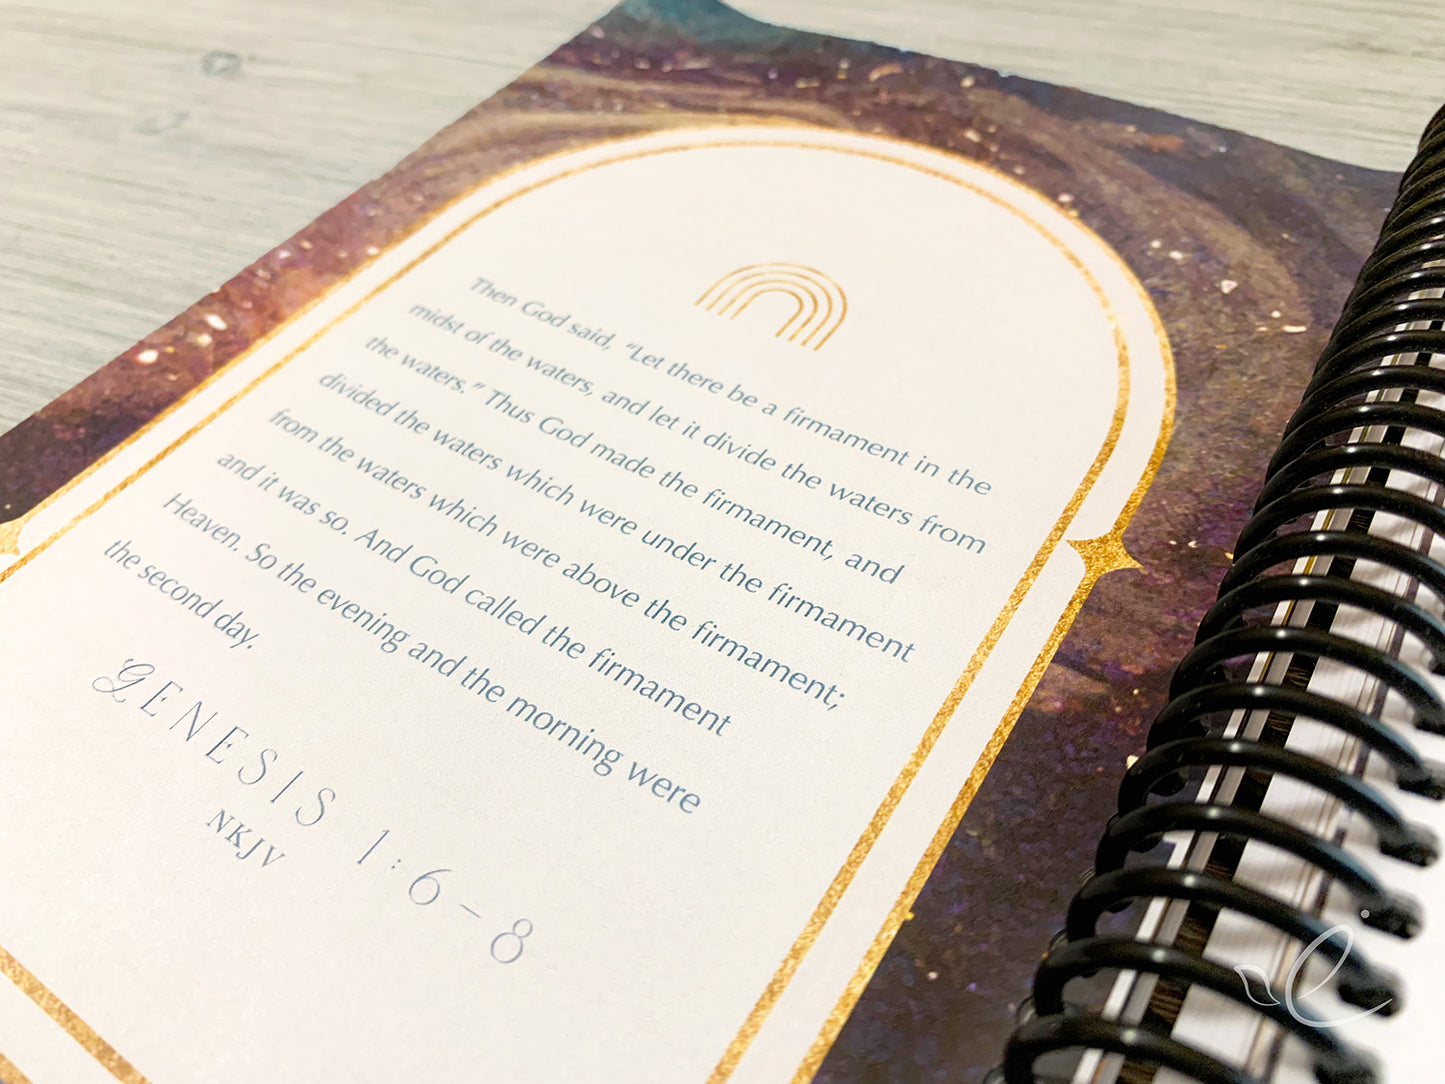 Then God said, “Let there be a firmament in the
midst of the waters, and let it divide the waters from
the waters.” Thus God made the firmament, and
divided the waters which were under the firmament
from the waters which were above the firmament;
and it was so. And God called the firmament
Heaven. So the evening and the morning were
the second day.
GENESIS 1:6–8
NKJV